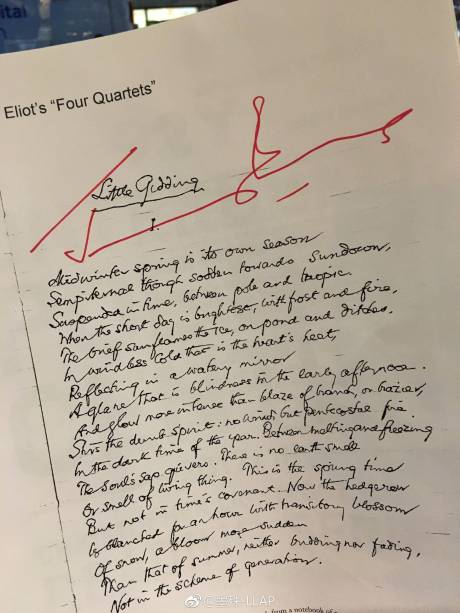 ital
Eliot's "Four Quartets"
Little Gidding
I.
Midwinter spring is its own season
Sempiternal though sodden towards sundown,
Suspended in time, between pole and tropic.
When the short day is brightest, with frost and fire,
The brief sun flames the ice, on pond and ditches,
In windless cold that is the heart's heat,
Reflecting in a watery mirror
A glare that is blindness in the early afternoon.
And glow more intense than blaze of branch, or brazier,
Stirs the dumb spirit: no wind, but pentecostal fire
In the dark time of the year. Between melting and freezing
The soul's sap quivers. There is no earth smell
Or smell of living thing. This is the spring time
But not in time's covenant. Now the hedgerow
Is blanched for an hour with transitory blossom
Of snow, a bloom more sudden
Than that of summer, neither budding nor fading,
Not in the scheme of generation.
from a notebook of